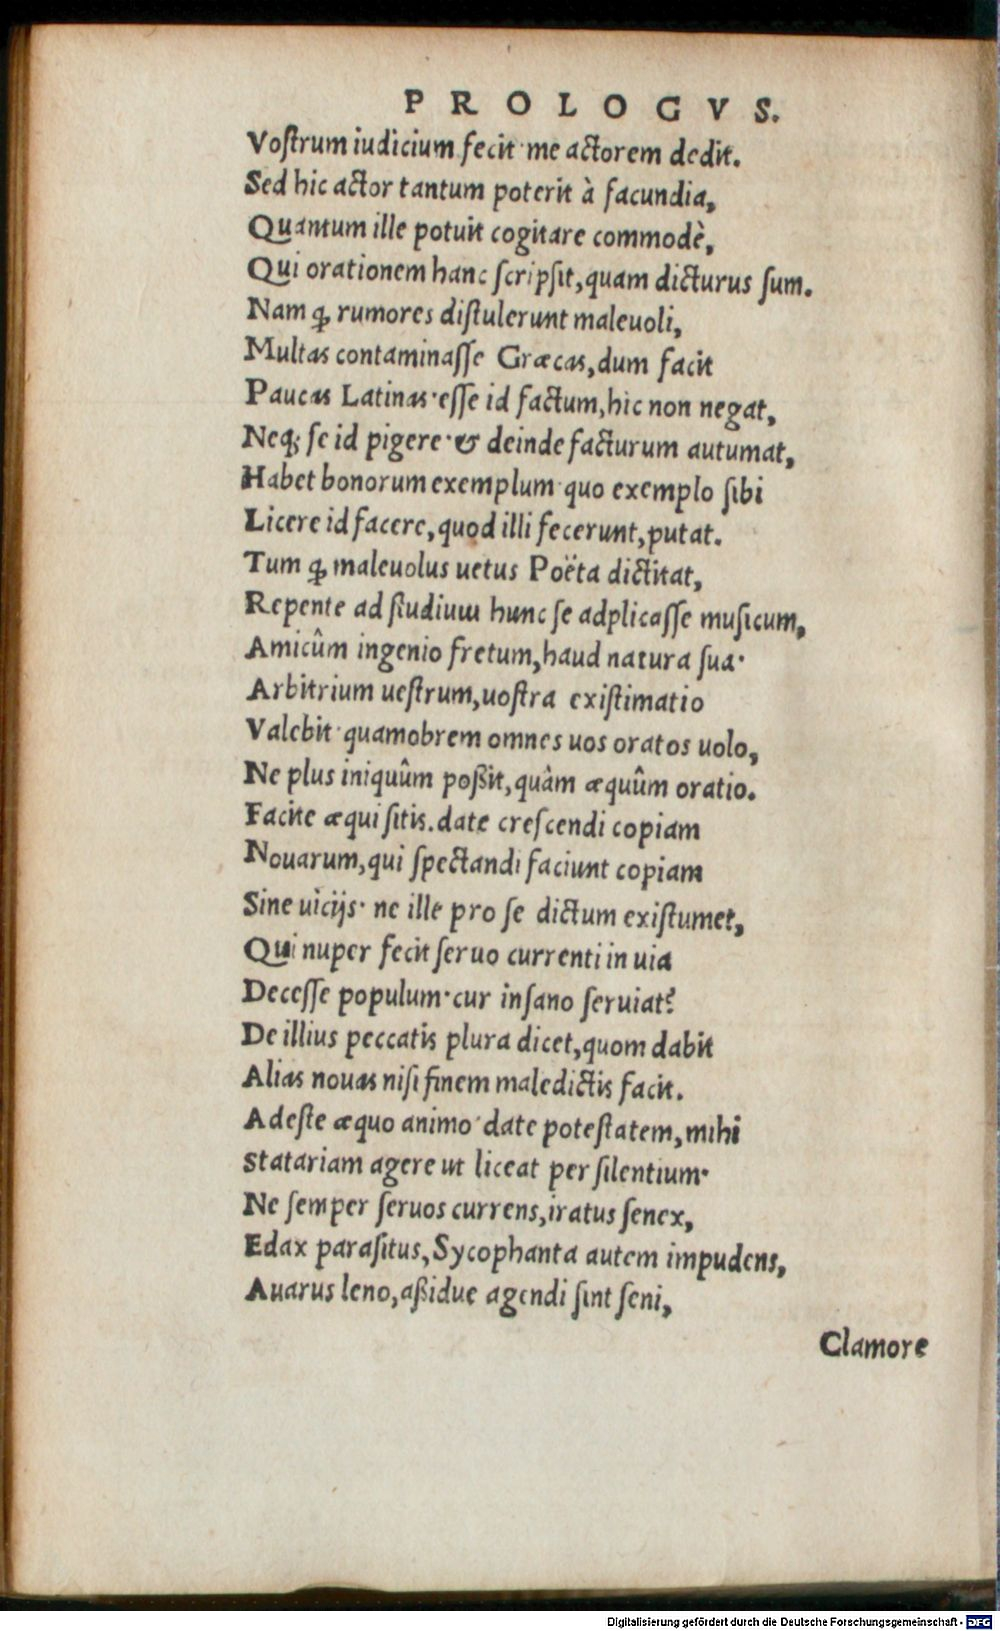 PROLOGVS.
Voſtrum iudicium fecit· me actorem dedit.
Sed hic actor tantum poterit à facundia,
Quantum ille potuit cogitare commodè,
Qui orationem hanc ſcripſit, quam dicturus ſum.
Nam ꝙ rumores diſtulerunt maleuoli,
Multas contaminaſſe Græcas, dum facit
Paucas Latinas· eſſe id factum, hic non negat,
Neq; ſe id pigere· & deinde facturum autumat,
Habet bonorum exemplum· quo exemplo ſibi
Licere id facere, quod illi fecerunt, putat.
Tum ꝙ maleuolus uetus Poëta dictitat,
Repente ad ſtudium hunc ſe adplicaſſe muſicum,
Amicûm ingenio fretum, haud natura ſua·
Arbitrium ueſtrum, uoſtra exiſtimatio
Valebit· quamobrem omnes uos oratos uolo,
Ne plus iniquûm poßit, quàm æquûm oratio.
Facite æqui ſitis. date creſcendi copiam
Nouarum, qui ſpectandi faciunt copiam
Sine uicijs· ne ille pro ſe dictum exiſtumet,
Qui nuper fecit ſeruo currenti in uia
Deceſſe populum· cur inſano ſeruiat?
De illius peccatis plura dicet, quom dabit
Alias nouas niſi finem maledictis facit.
Adeſte æquo animo· date poteſtatem, mihi
Statariam agere ut liceat per ſilentium·
Ne ſemper ſeruos currens, iratus ſenex,
Edax paraſitus, Sycophanta autem impudens,
Auarus leno, aßidue agendi ſint ſeni,
Clamore
Digitalisierung gefördert durch die Deutsche Forschungsgemeinschaft - DFG